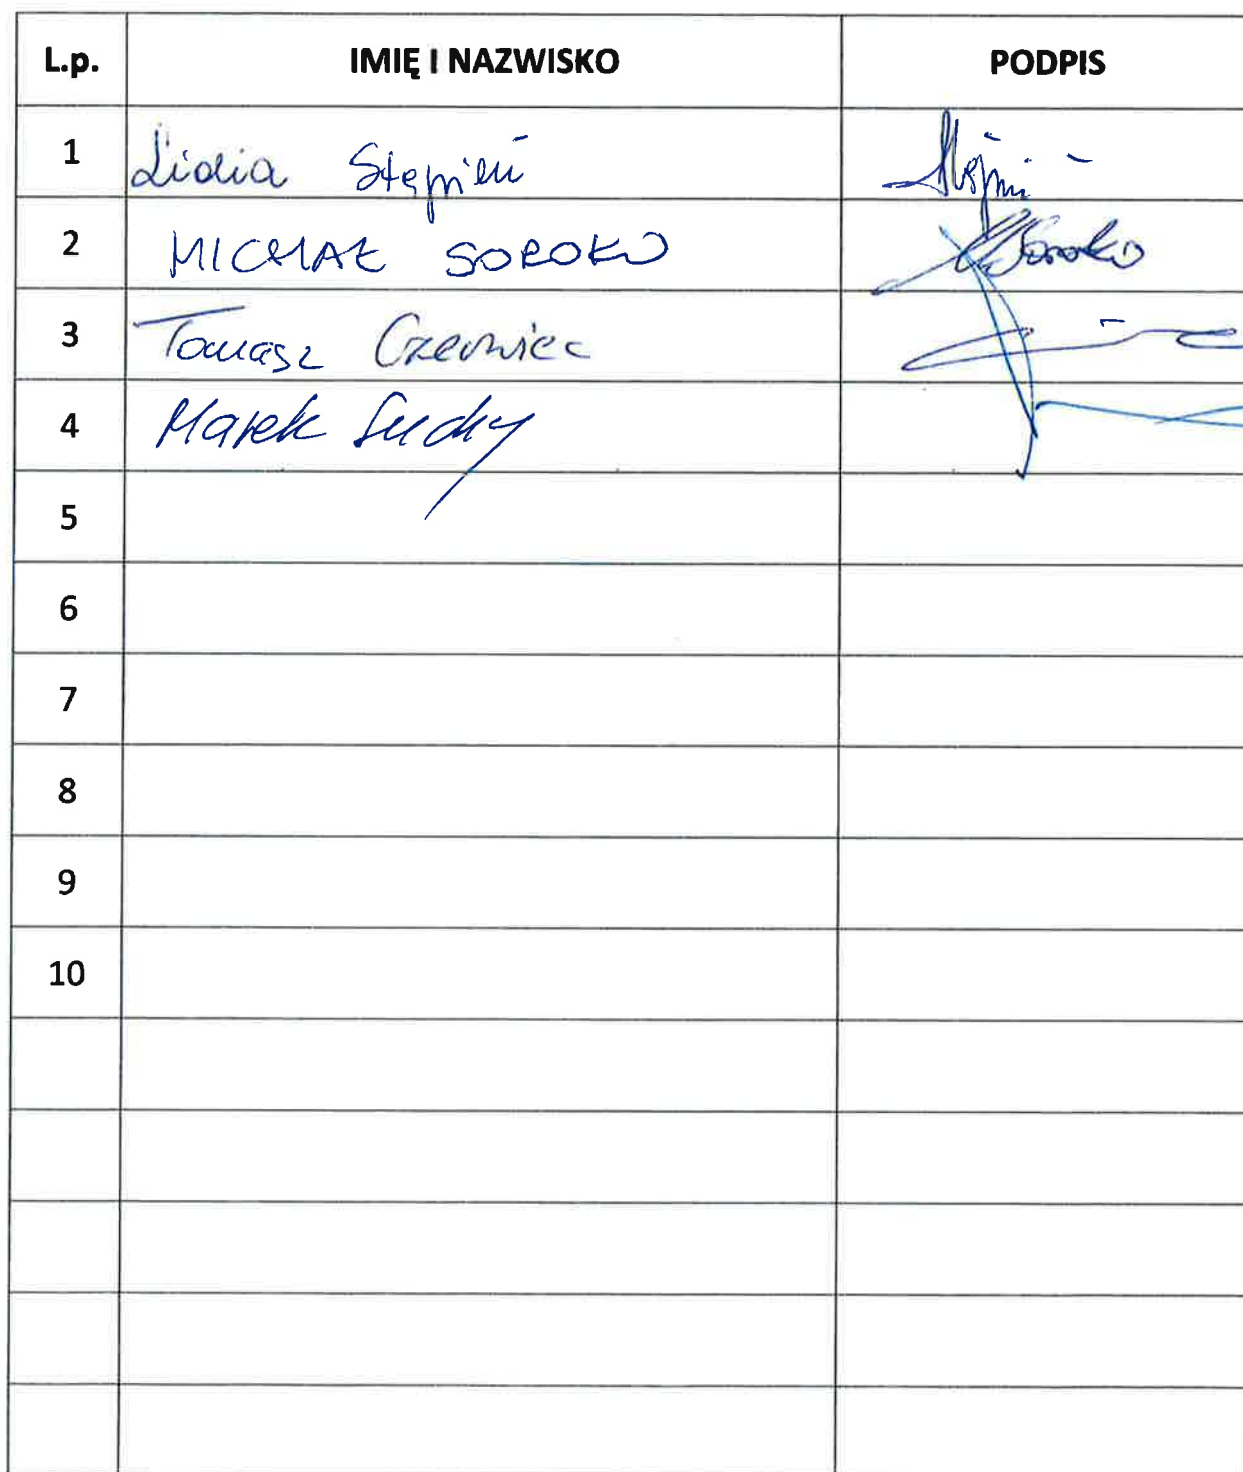 L.p. IMIĘ I NAZWISKO PODPIS
1 Lidia Stępień
2 MICHAŁ SOROKO Soroko
3 Tomasz Czerwiec
4 Marek Suchy
5
6
7
8
9
10